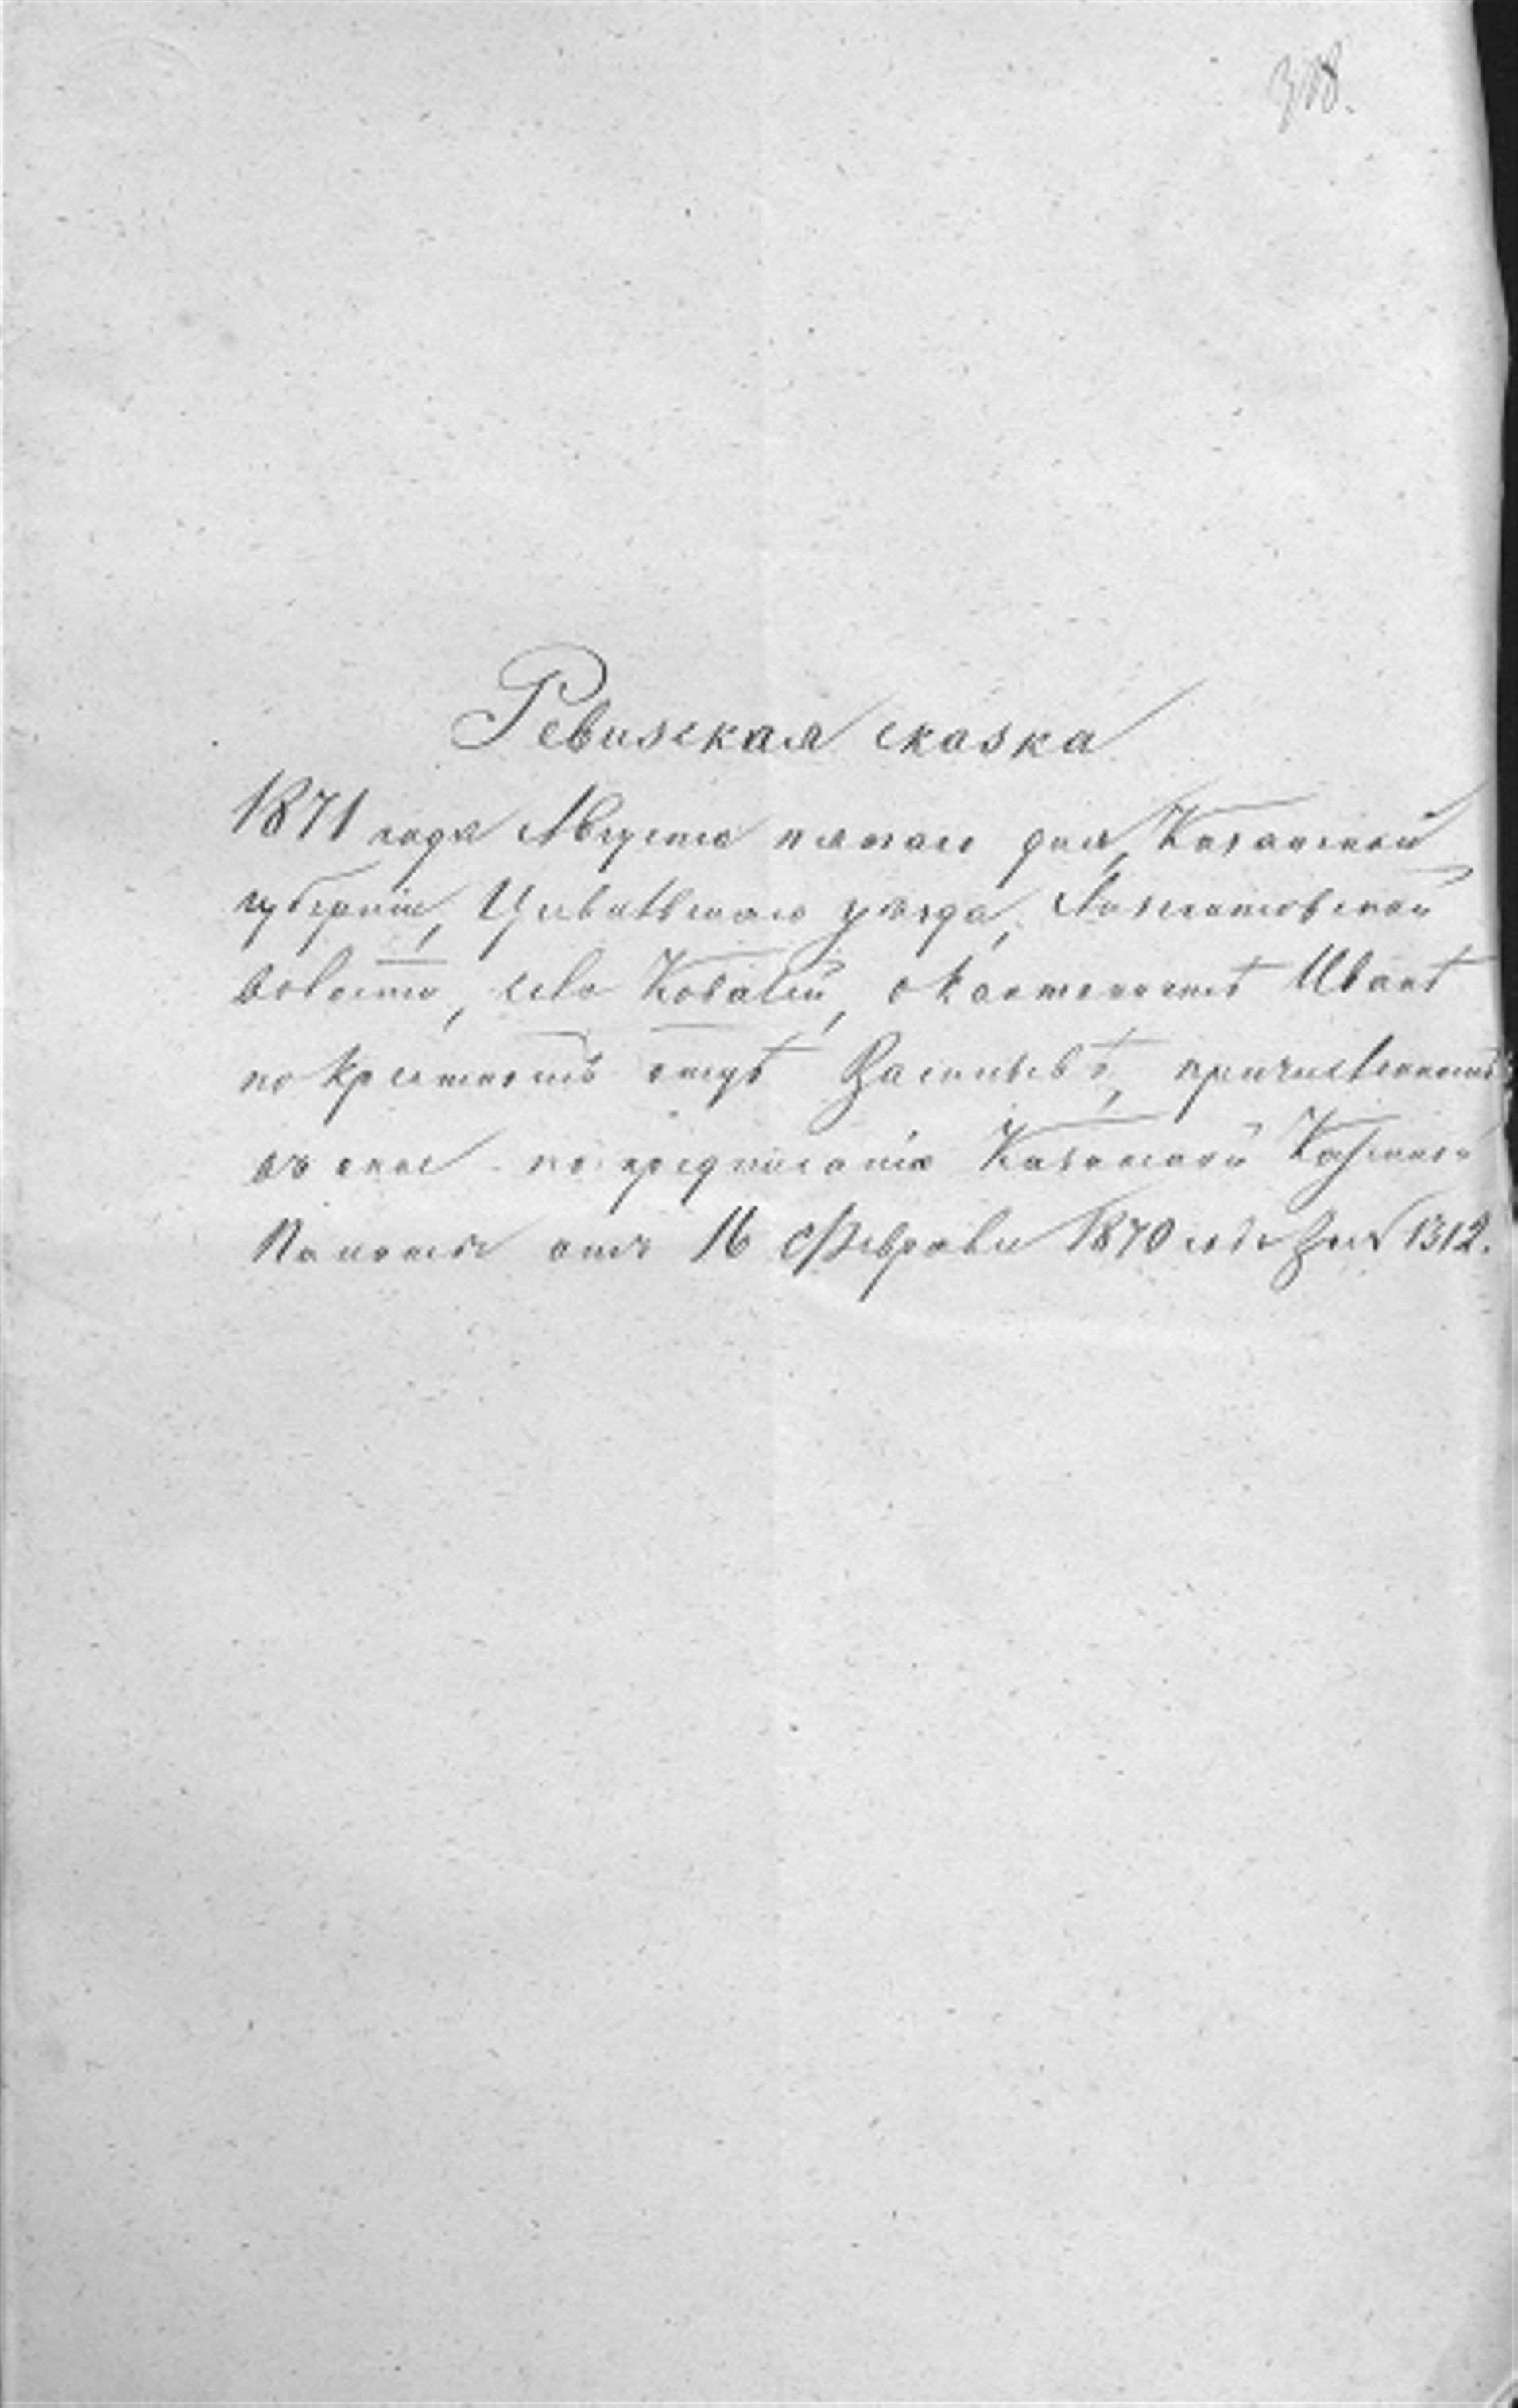 318.
Ревизская сказка
1871 года Августа пятаго дня, Казанской
губерніи, Цивильскаго уѣзда,
волости, села Ковалей, о Іванѣ
по крестномъ отцѣ Васильевѣ, причисленномъ
въ оное по предписанію Казанской Казенной
Палаты отъ 16 Февраля 1870 года за № 1312.